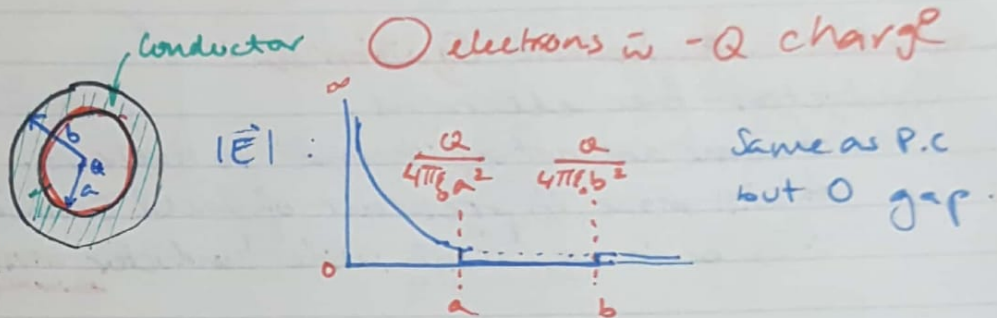 conductor
○ electrons is -Q charge
b
Q
a
|E⃗| :
∞
Q/4πε₀a²
Q/4πε₀b²
0
a
b
Same as P.C
but 0 gap.